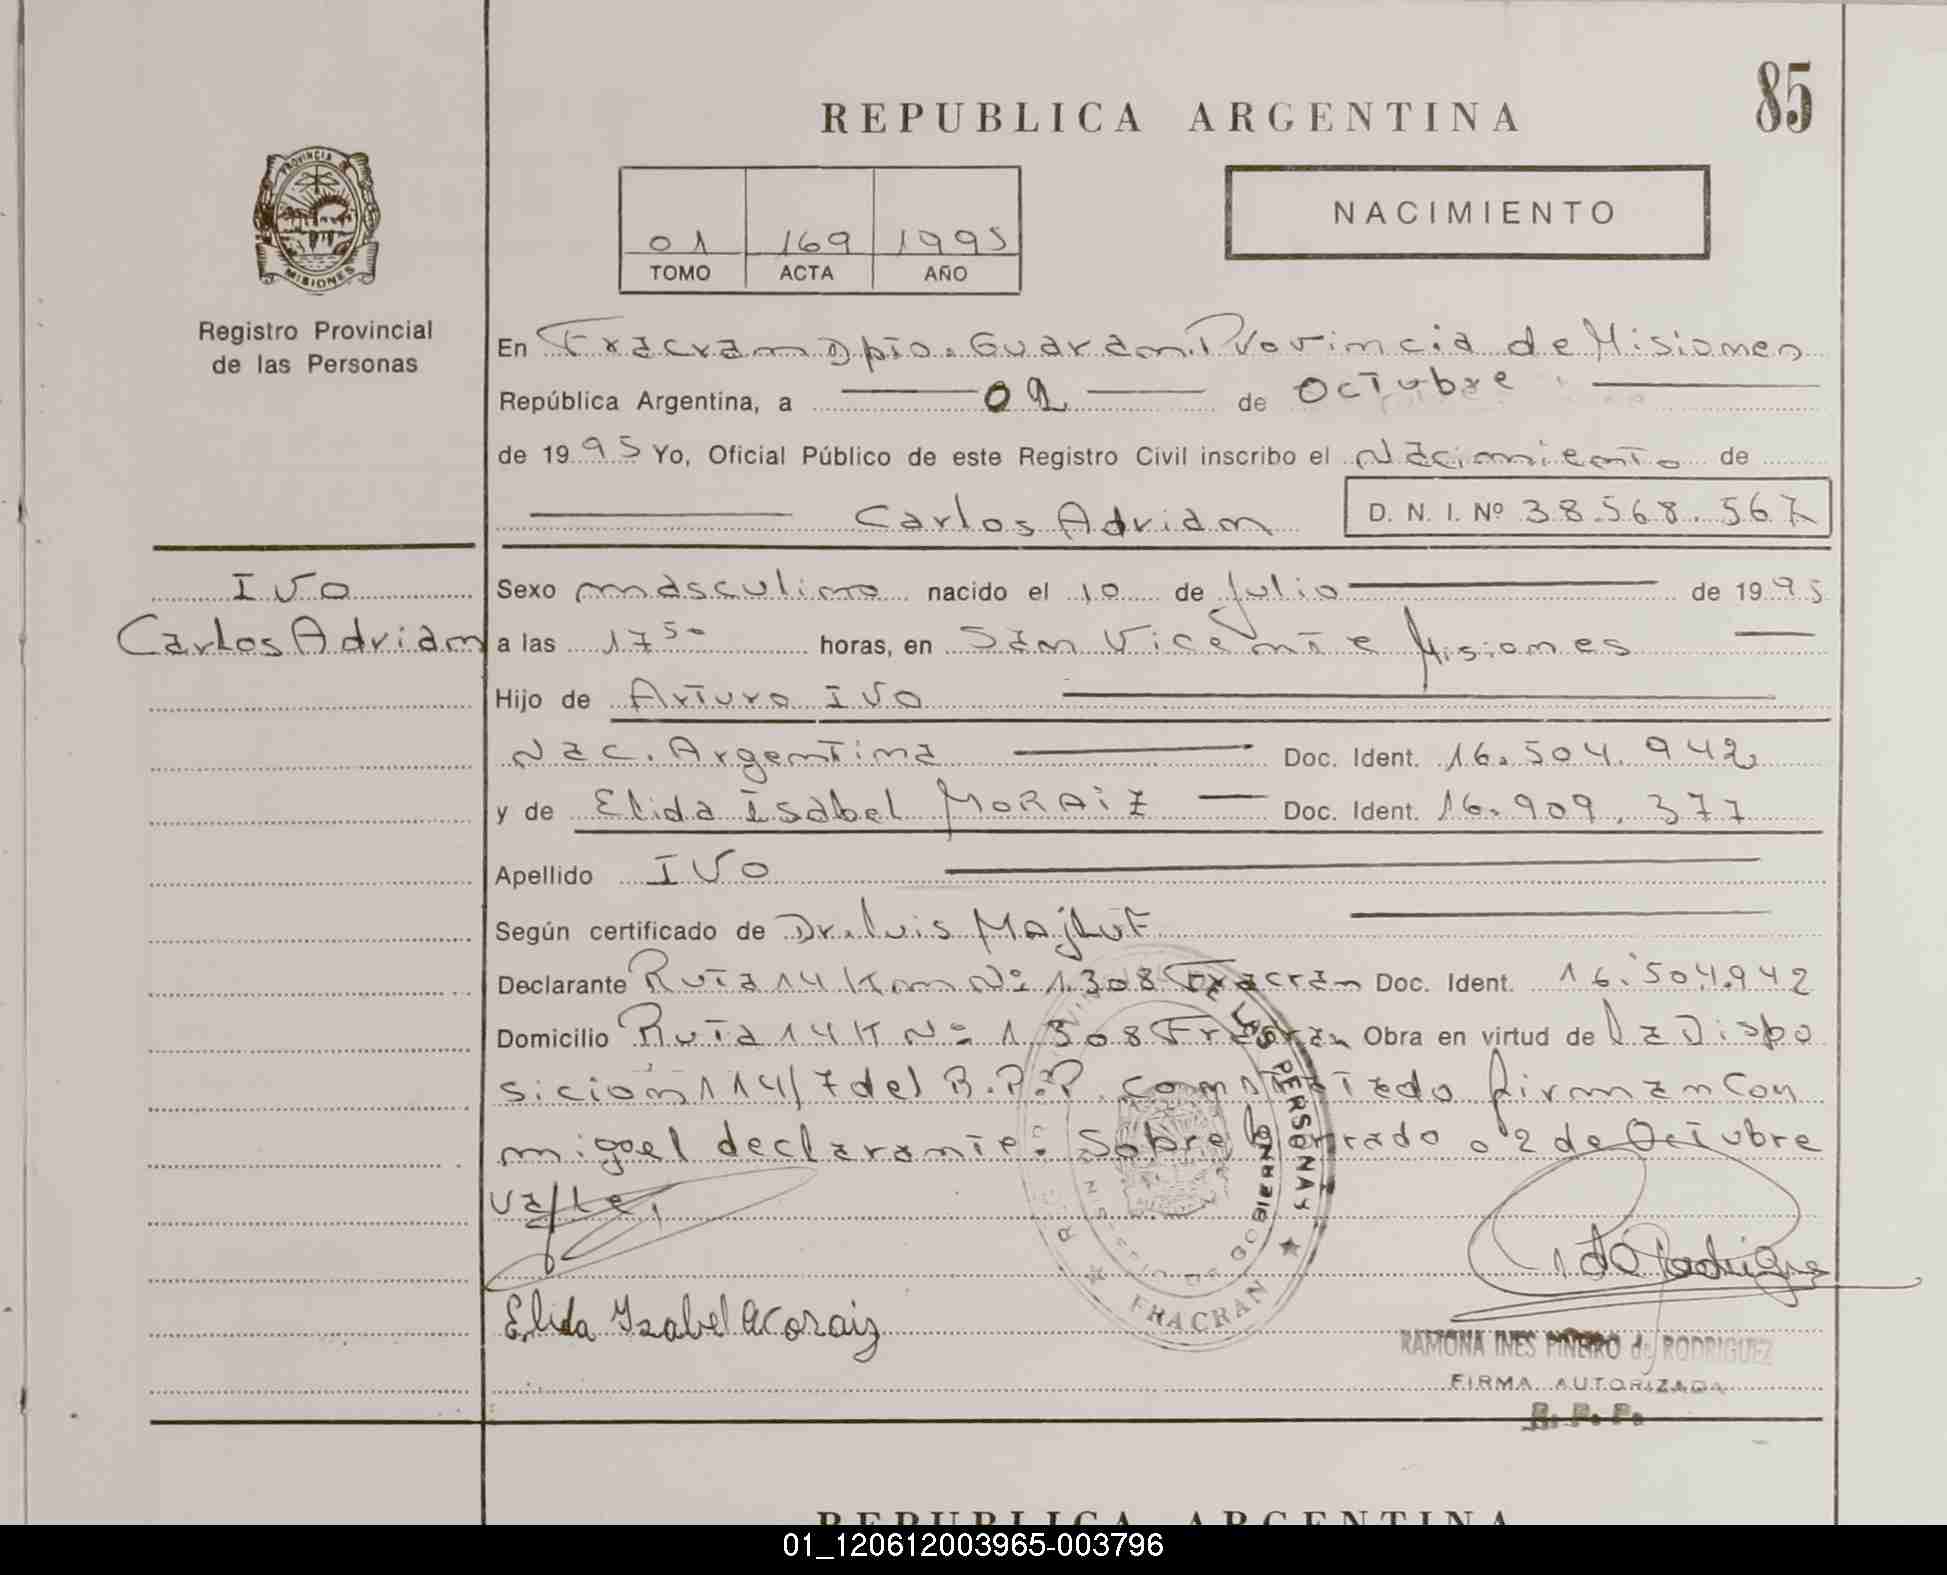 85
REPUBLICA ARGENTINA
NACIMIENTO
01 169 1995
TOMO ACTA AÑO
PROVINCIA DE
MISIONES
Registro Provincial
de las Personas
En Fracran Dpto. Guaraní Provincia de Misiones
República Argentina, a 02 de Octubre
de 1995 Yo, Oficial Público de este Registro Civil inscribo el Nacimiento de
Carlos Adrian D. N. I. Nº 38.568.567
IVO
Carlos Adrian
Sexo masculino nacido el 10 de Julio de 1995
a las 17 50 horas, en San Vicente Misiones
Hijo de Arturo IVO
Nac. Argentina Doc. Ident. 16.504.942
y de Elida Isabel MORAIZ Doc. Ident. 16.909.377
Apellido IVO
Según certificado de Dr. Luis Majluf
Declarante Ruta 14 Km Nº 1.308 Fracran Doc. Ident. 16.504.942
Domicilio Ruta 14 K Nº 1.308 Fracran Obra en virtud de la Dispo
sición 114/7 del R.P.P. constatado firman con
migo el declarante. Sobre borrado 02 de Octubre
vale.
DE LAS PERSONAS
GOBIERNO
FRACRAN
Elida Isabel Moraiz
Rodrigue
RAMONA INES PIÑEIRO de RODRIGUEZ
FIRMA AUTORIZADA
R. P. P.
REPUBLICA ARGENTINA
01_120612003965-003796